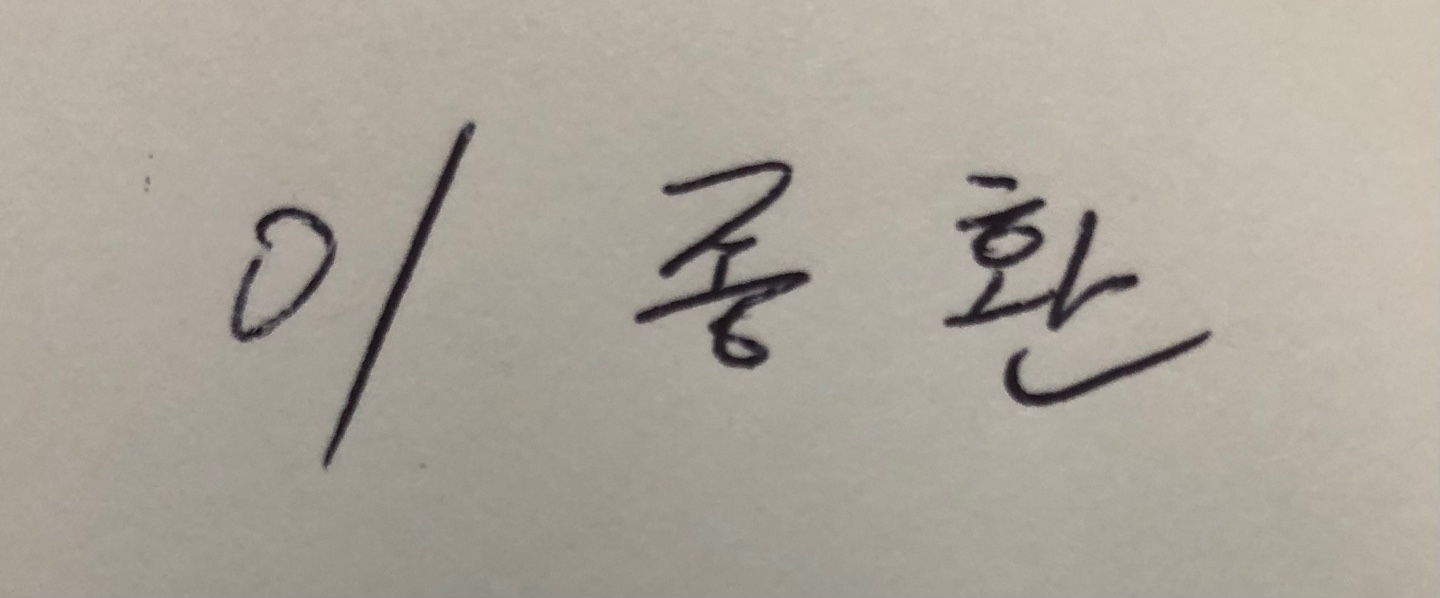 이종환